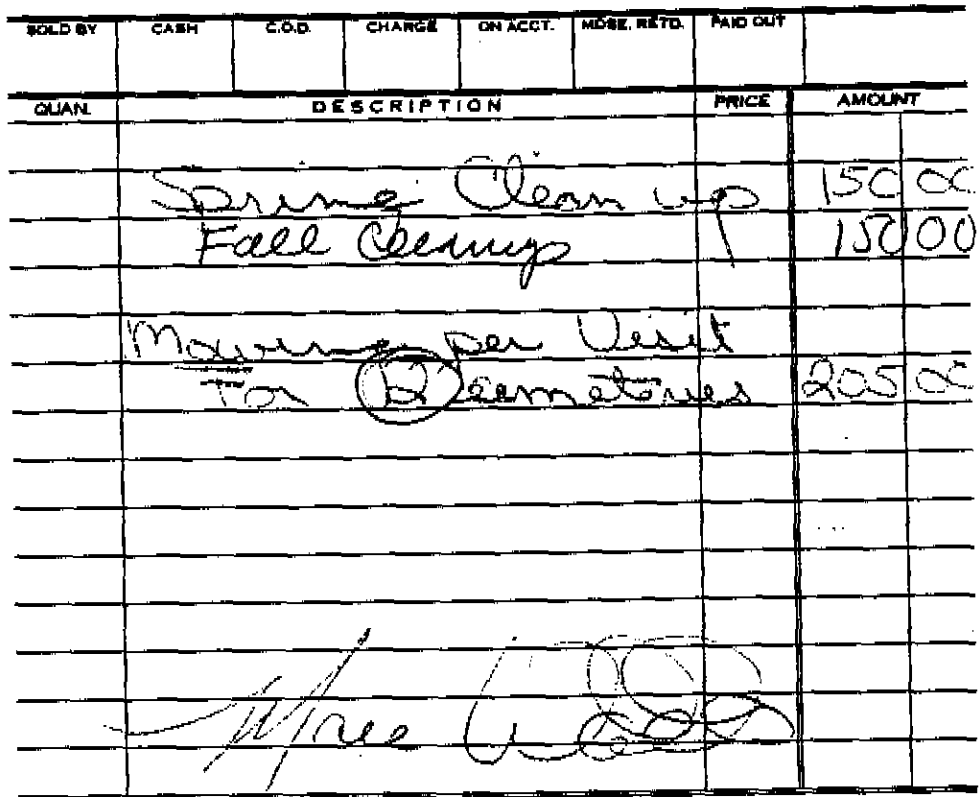 SOLD BY CASH C.O.D. CHARGE ON ACCT. MDSE. RETD. PAID OUT
QUAN. DESCRIPTION PRICE AMOUNT
Spring Clean up 150 00
Fall Cleanup 150 00
Mowing per Visit
For 2 Cemeteries 205 00